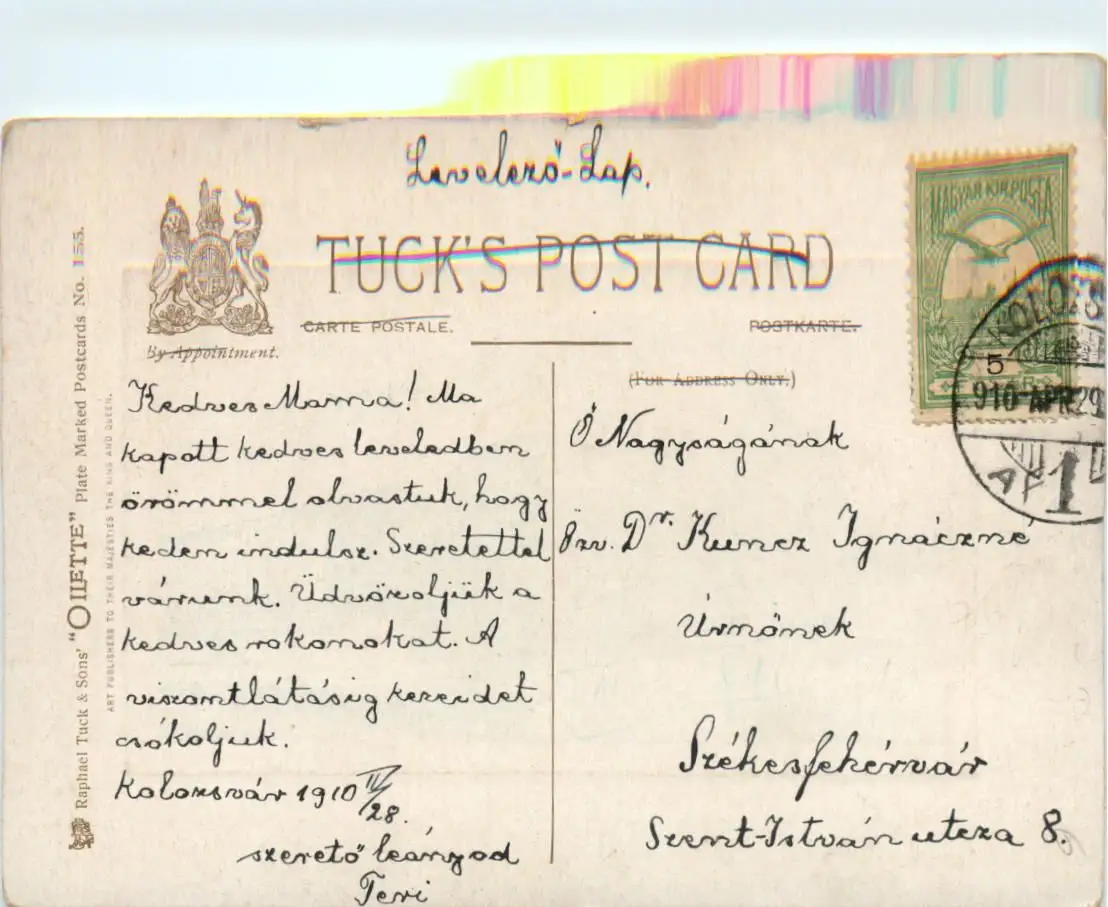 Levelező-Lap.
TUCK'S POST CARD
CARTE POSTALE.
POSTKARTE.
By Appointment.
(FOR ADDRESS ONLY.)
Raphael Tuck & Sons' "OILETTE" Plate Marked Postcards No. 155.
ART PUBLISHERS TO THEIR MAJESTIES THE KING AND QUEEN.
MAGYAR KIR. POSTA
KOLOZS
5
910 APR 29
1
Kedves Mama! Ma
kapott kedves leveledben
örömmel olvastuk, hogy
keden indulsz. Szeretettel
várunk. Üdvözöljük a
kedves rokonokat. A
viszontlátásig kezeidet
csókoljuk.
Kolozsvár 1910 IV/28.
szerető leányod
Teri
Ő Nagyságának
Özv. Dr. Kuncz Ignáczné
Úrnőnek
Székesfehérvár
Szent-István utcza 8.